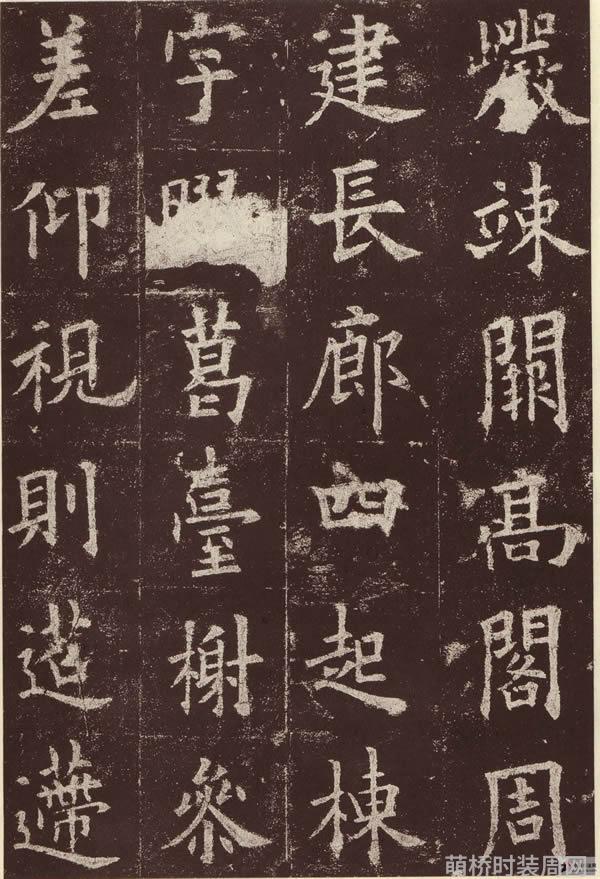 巖竦闕高閣周
建長廊四起棟
宇葛臺榭參
差仰視則迢遰
萌桥时装周网